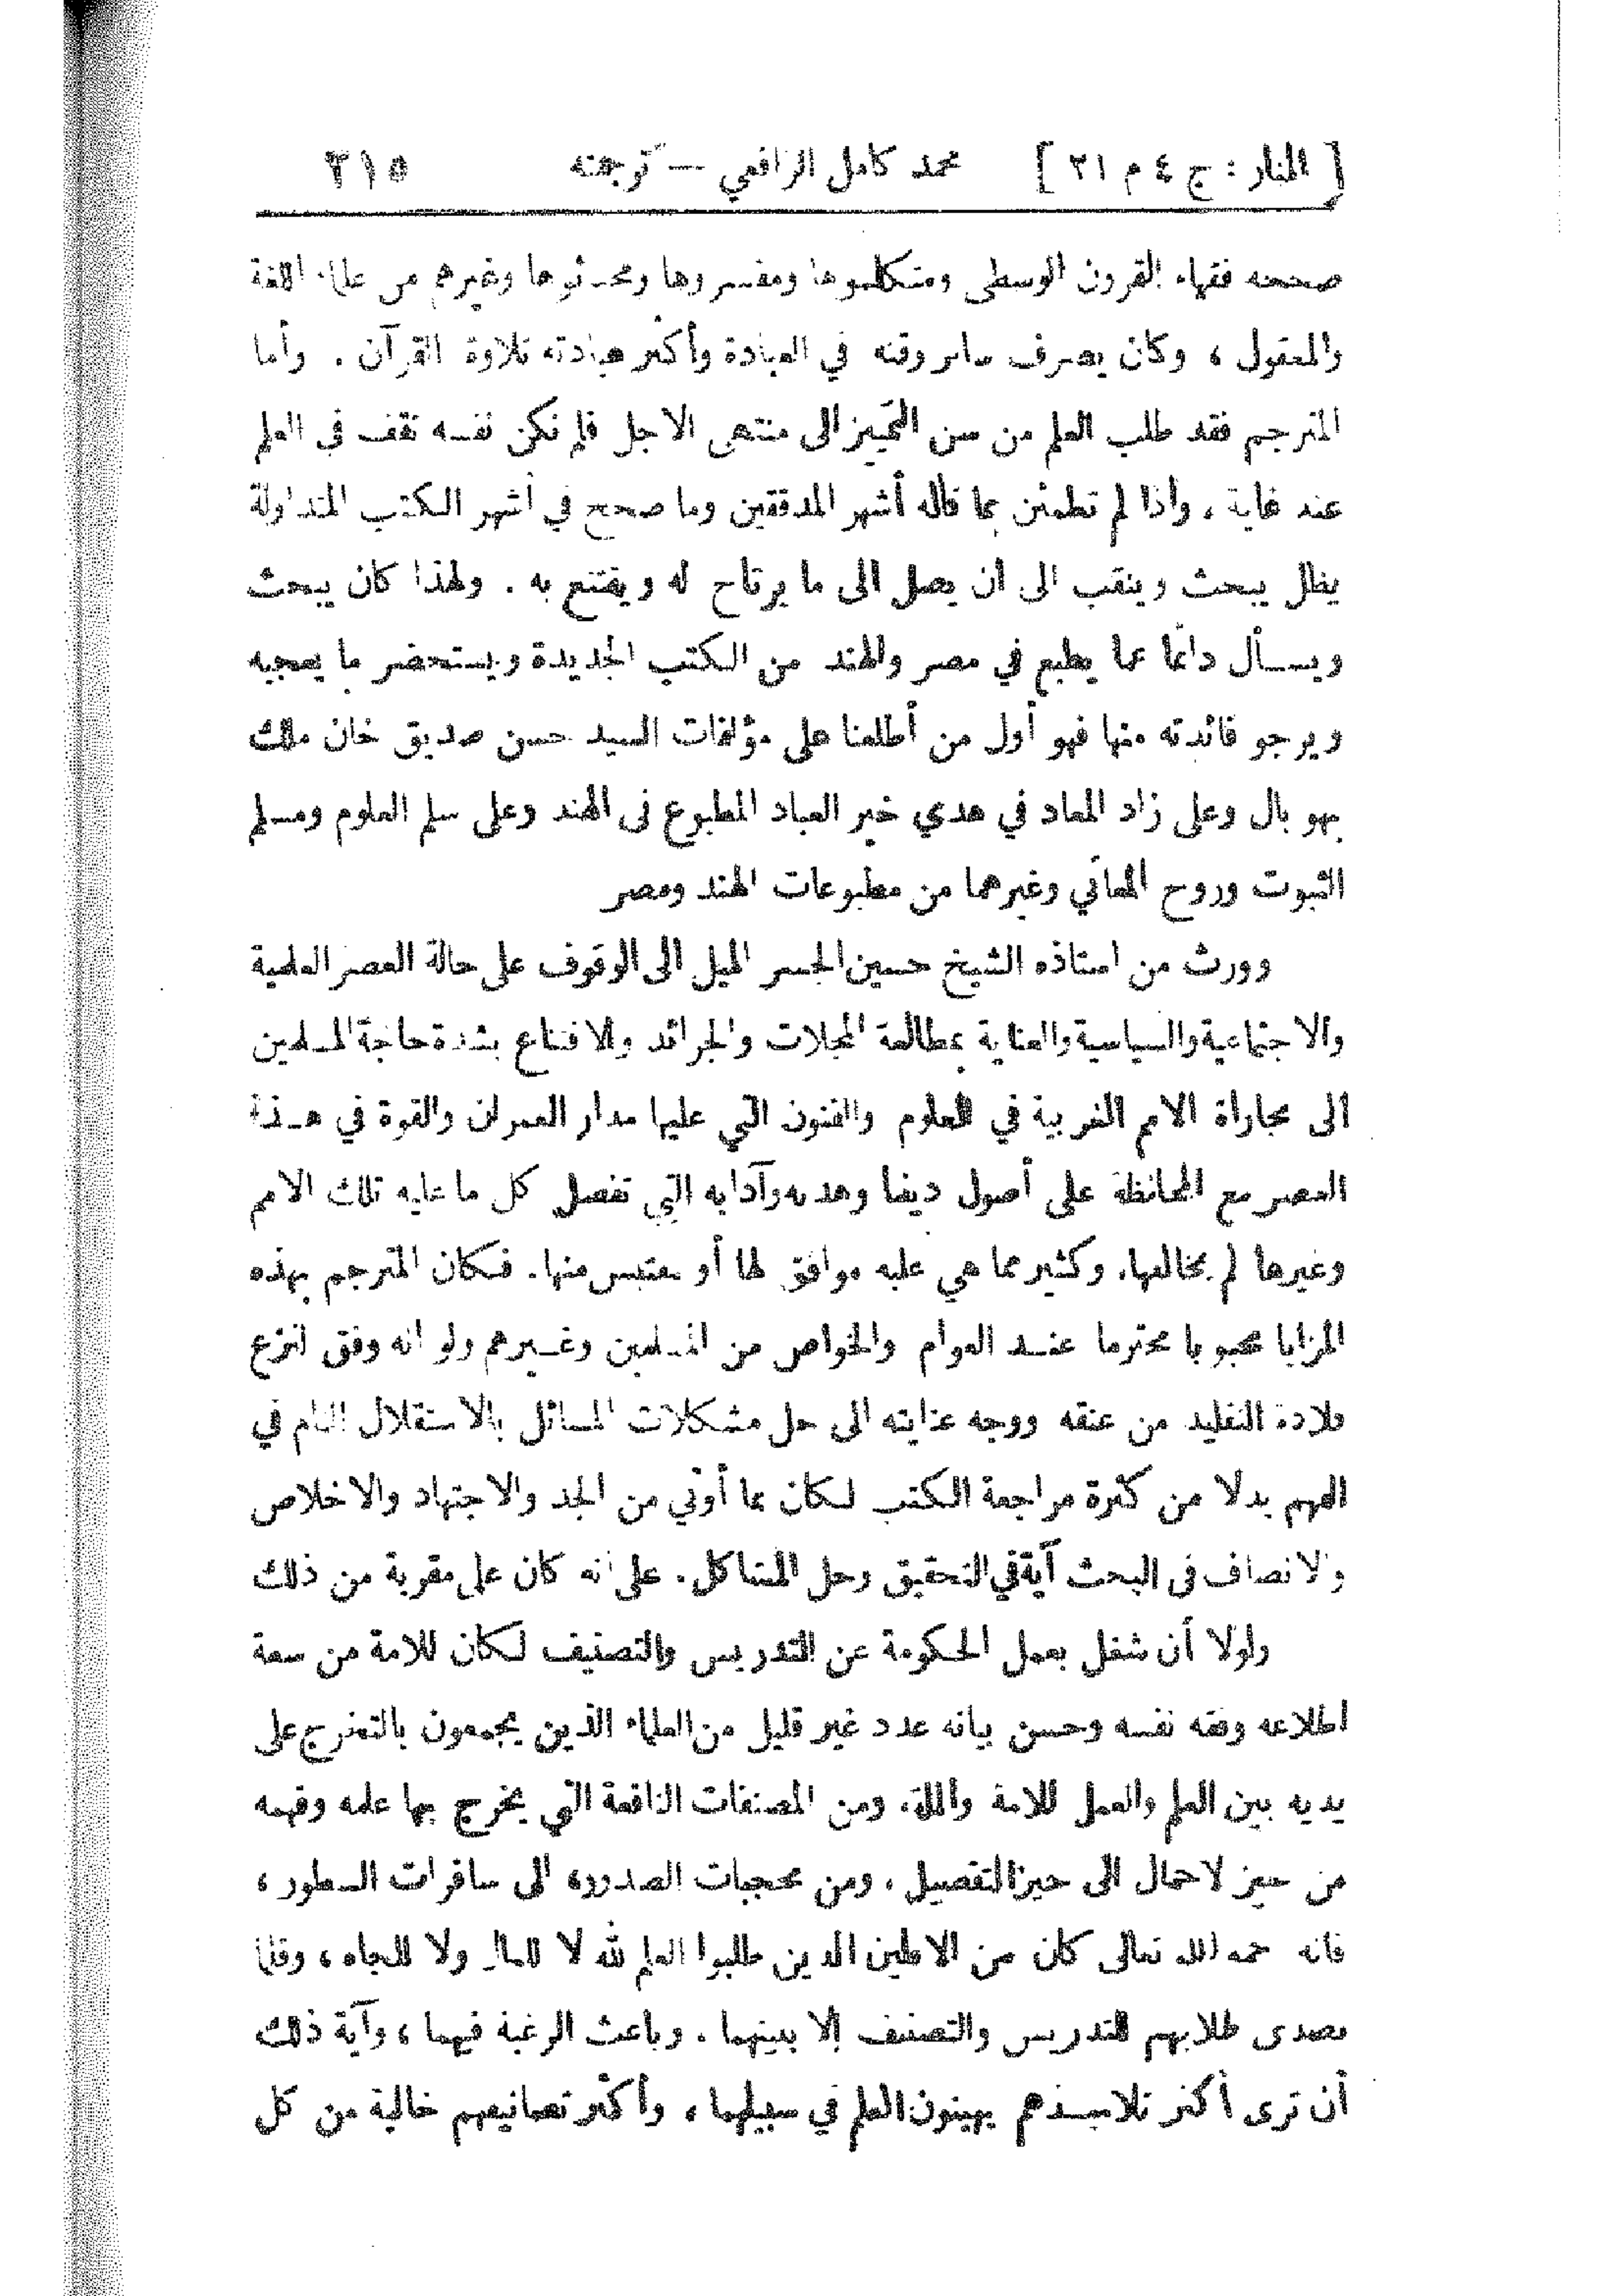 [ المنار : ج ٤ م ٢١ ] محمد كامل الرافعي — ترجمته ٢١٥
صححه فقهاء القرون الوسطى ومتكلموها ومفسروها ومحدثوها وغيرهم من علماء اللغة
والمعقول ، وكان يصرف سائر وقته في العبادة وأكثر عبادته تلاوة القرآن . وأما
المترجم فقد طلب العلم من سن التمييز الى منتهى الاجل فلم تكن نفسه تقف في العلم
عند غاية ، واذا لم تطمئن بما قاله أشهر المدققين وما صحح في أشهر الكتب المتداولة
يظل يبحث وينقب الى ان يصل الى ما يرتاح له ويقتنع به . ولهذا كان يبحث
ويسأل دائما عما يطبع في مصر والهند من الكتب الجديدة ويستحضر ما يعجبه
ويرجو فائدته منها فهو أول من أطلعنا على مؤلفات السيد حسن صديق خان ملك
بهو بال وعلى زاد المعاد في هدي خير العباد المطبوع في الهند وعلى سلم العلوم ومسلم
الثبوت وروح المعاني وغيرهما من مطبوعات الهند ومصر
وورث من استاذه الشيخ حسين الجسر الميل الى الوقوف على حالة العصر العلمية
والاجتماعية والسياسية والعناية بمطالعة المجلات والجرائد والاقتناع بشدة حاجة المسلمين
الى مجاراة الامم الغربية في العلوم والفنون التي عليها مدار العمران والقوة في هـذا
العصر مع المحافظة على أصول ديننا وهديه وآدابه التي تفضل كل ما عليه تلك الامم
وغيرها لم يخالفها، وكثير مما هي عليه موافق لها أو مقتبس منها. فكان المترجم بهذه
المزايا محبوبا محترما عنـد العوام والخواص من المسلمين وغـيرهم ولو انه وفق لنزع
قلادة التقليد من عنقه ووجه عنايته الى حل مشكلات المسائل بالاستقلال التام في
الفهم بدلا من كثرة مراجعة الكتب لكان بما أوتي من الجد والاجتهاد والاخلاص
والانصاف في البحث آية في التحقيق وحل المشاكل. على انه كان على مقربة من ذلك
ولولا أن شغل بعمل الحكومة عن التدريس والتصنيف لكان للامة من سعة
اطلاعه وفقه نفسه وحسن بيانه عدد غير قليل من العلماء الذين يجمعون بالتخرج على
يديه بين العلم والعمل للامة والملة، ومن المصنفات النافعة التي يخرج بها علمه وفهمه
من حيز الاجمال الى حيز التفصيل ، ومن محجبات الصدور، الى سافرات السطور ،
فانه رحمه الله تعالى كان من الذين طلبوا العلم لله لا للمال ولا للجاه ، وقلما
تصدى طلابهم للتدريس والتصنيف إلا بنيتهما . وباعث الرغبة فيهما ، وآية ذلك
أن ترى أكثر تلاميـذهم يهينون العلم في سبيلهما ، وأكثر تصانيفهم خالية من كل